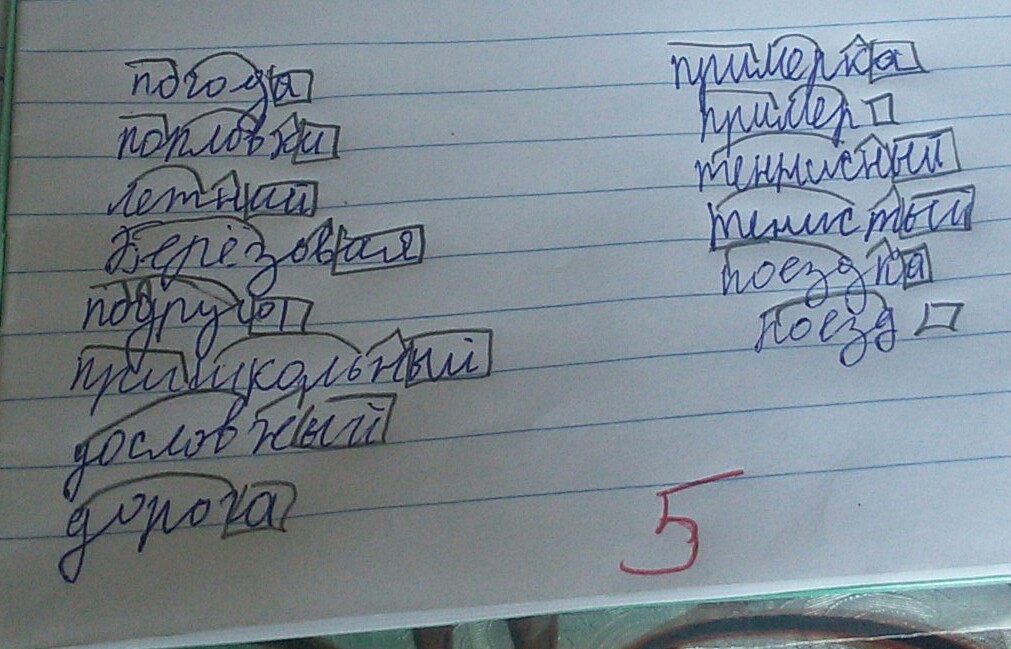 погода
попловки
летний
берёзовая
подругой
пришкольный
дословный
дорога
примерка
пример
теннисный
тенистый
поездка
поезд
5